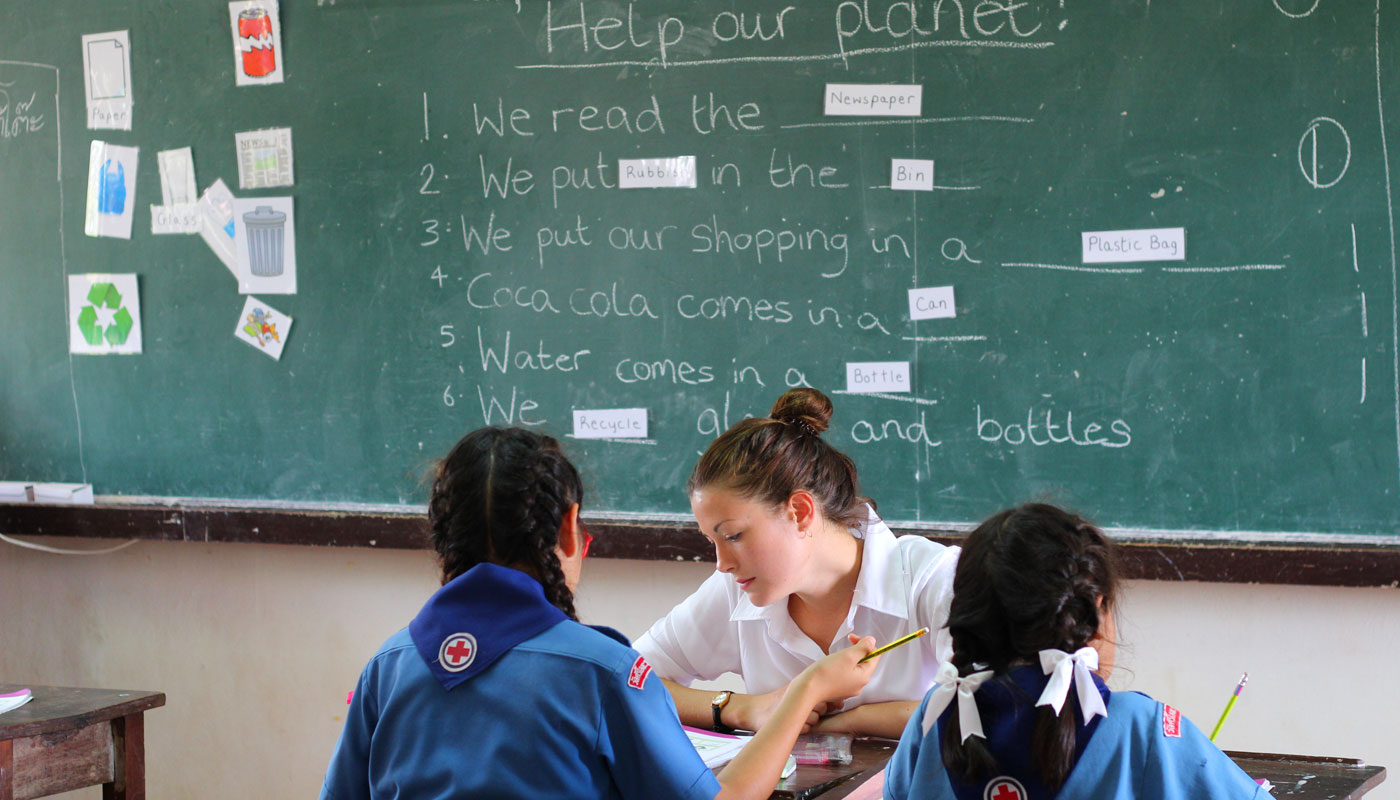 Help our planet!
1. We read the Newspaper
2. We put Rubbish in the Bin
3. We put our shopping in a Plastic Bag
4. Coca cola comes in a Can
5. Water comes in a Bottle
6. We Recycle and bottles
Paper
NEWS
Glass